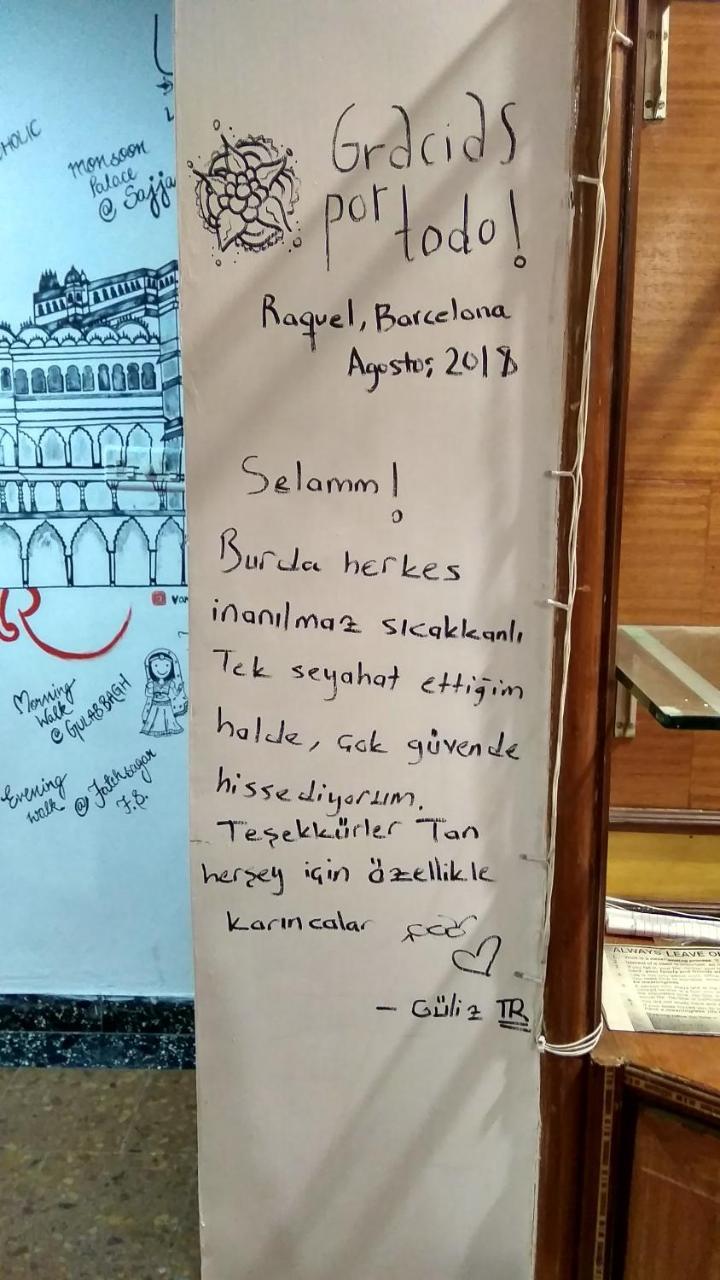 HOLIC
Monsoon
Palace
@ Sajja
Gracias
por
todo!
Raquel, Barcelona
Agosto, 2018
Selamm!
Burda herkes
inanılmaz sıcakkanlı
Tek seyahat ettiğim
halde, çok güvende
hissediyorum.
Teşekkürler Tan
herşey için özellikle
karıncalar
- Güliz TR
Morning
Walk
@ GULABBAGH
Evening
walk @ Fatehsagar
F.S.
ALWAYS LEAVE